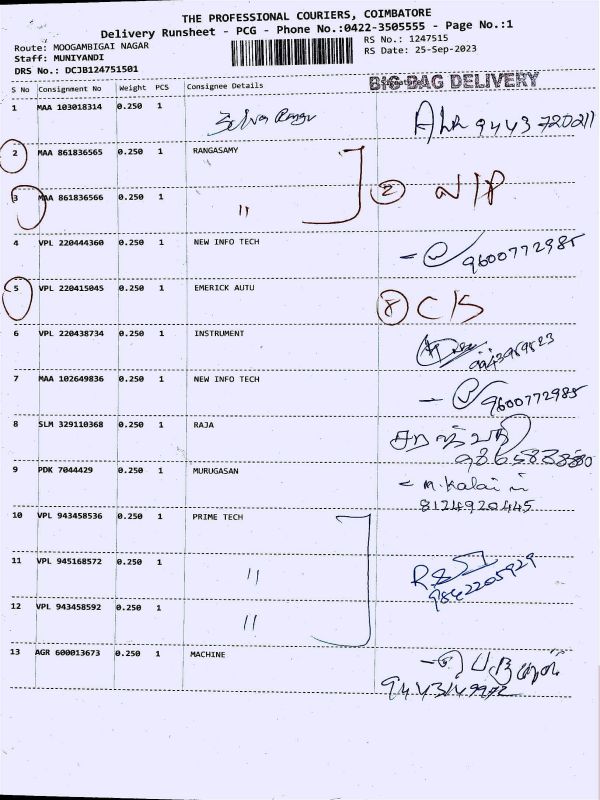 THE PROFESSIONAL COURIERS, COIMBATORE
Delivery Runsheet - PCG - Phone No.:0422-3505555 - Page No.:1
Route: MOOGAMBIGAI NAGAR RS No.: 1247515
Staff: MUNIYANDI RS Date: 25-Sep-2023
DRS No.: DCJB124751501
BIG BAG DELIVERY
S No Consignment No Weight PCS Consignee Details
1 MAA 103018314 0.250 1
2 MAA 861836565 0.250 1 RANGASAMY
3 MAA 861836566 0.250 1 " ② N/P
4 VPL 220444360 0.250 1 NEW INFO TECH 9600772985
5 VPL 220415045 0.250 1 EMERICK AUTU ⑧ C/S
6 VPL 220438734 0.250 1 INSTRUMENT
7 MAA 102649836 0.250 1 NEW INFO TECH 9600772985
8 SLM 329110368 0.250 1 RAJA
9 PDK 7044429 0.250 1 MURUGASAN - M.Kalai
8124920445
10 VPL 943458536 0.250 1 PRIME TECH
11 VPL 945168572 0.250 1 "
9842205929
12 VPL 943458592 0.250 1 "
13 AGR 600013673 0.250 1 MACHINE